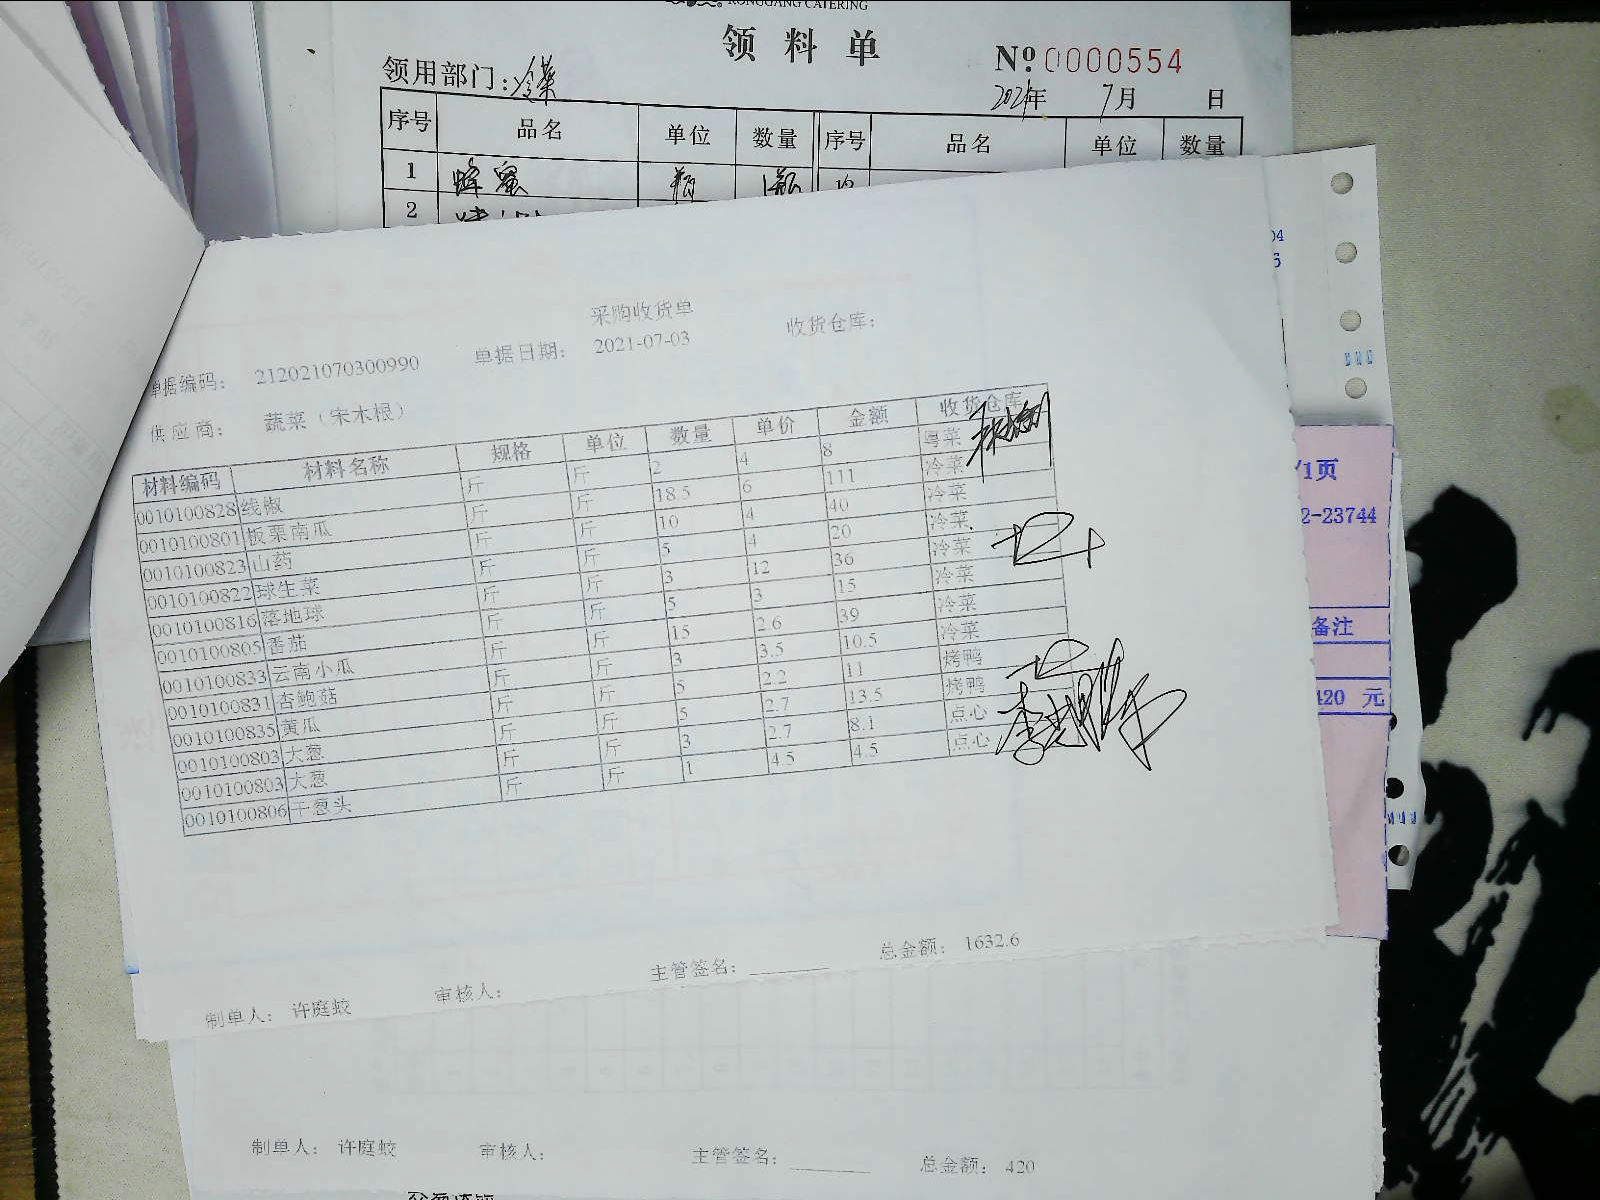 RONGGANG CATERING
领料单
№0000554
领用部门:冷菜
2021年 7月 日
序号 品名 单位 数量 序号 品名 单位 数量
1 蜂蜜 瓶 1瓶 12
2
采购收货单
单据编码: 212021070300990 单据日期: 2021-07-03 收货仓库:
供应商: 蔬菜（宋木根）
材料编码 材料名称 规格 单位 数量 单价 金额 收货仓库
0010100828 线椒 斤 斤 2 4 8 粤菜
0010100801 板栗南瓜 斤 斤 18.5 6 111 冷菜
0010100823 山药 斤 斤 10 4 40 冷菜
0010100822 球生菜 斤 斤 5 4 20 冷菜
0010100816 落地球 斤 斤 3 12 36 冷菜
0010100805 番茄 斤 斤 5 3 15 冷菜
0010100833 云南小瓜 斤 斤 15 2.6 39 冷菜
0010100831 杏鲍菇 斤 斤 3 3.5 10.5 冷菜
0010100835 黄瓜 斤 斤 5 2.2 11 烤鸭
0010100803 大葱 斤 斤 5 2.7 13.5 烤鸭
0010100803 大葱 斤 斤 3 2.7 8.1 点心
0010100806 干葱头 斤 斤 1 4.5 4.5 点心
制单人: 许庭蛟 审核人: 主管签名: 总金额: 1632.6
制单人: 许庭蛟 审核人: 主管签名: 总金额: 420
04
/1页
2-23744
备注
420 元